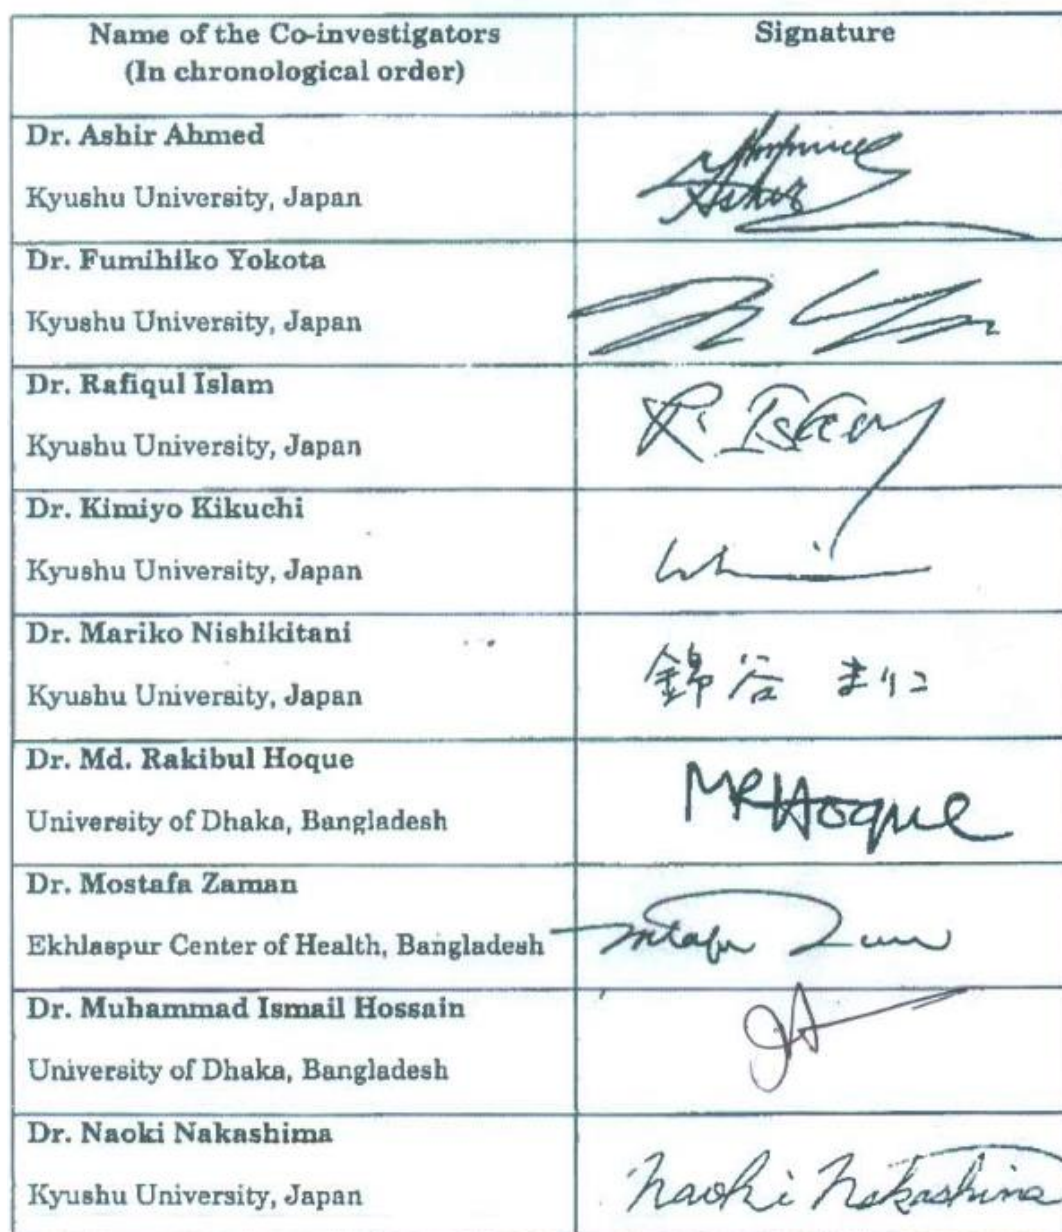 Name of the Co-investigators
(In chronological order)
Signature
Dr. Ashir Ahmed
Kyushu University, Japan
Ashir
Dr. Fumihiko Yokota
Kyushu University, Japan
Dr. Rafiqul Islam
Kyushu University, Japan
R. Islam
Dr. Kimiyo Kikuchi
Kyushu University, Japan
Dr. Mariko Nishikitani
Kyushu University, Japan
錦谷 まりこ
Dr. Md. Rakibul Hoque
University of Dhaka, Bangladesh
MRHoque
Dr. Mostafa Zaman
Ekhlaspur Center of Health, Bangladesh
Dr. Muhammad Ismail Hossain
University of Dhaka, Bangladesh
Dr. Naoki Nakashima
Kyushu University, Japan
Naoki Nakashima